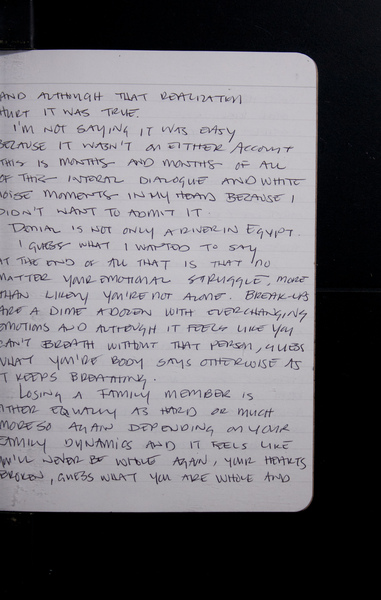 AND ALTHOUGH THAT REALIZATION
HURT IT WAS TRUE.
I'M NOT SAYING IT WAS EASY
BECAUSE IT WASN'T ON EITHER ACCOUNT
THIS IS MONTHS AND MONTHS OF ALL
OF THIS INTERAL DIALOGUE AND WHITE
NOISE MOMENTS IN MY HEAD BECAUSE I
DIDN'T WANT TO ADMIT IT.
DENIAL IS NOT ONLY A RIVER IN EGYPT.
I GUESS WHAT I WANTED TO SAY
AT THE END OF ALL THAT IS THAT NO
MATTER YOUR EMOTIONAL STRUGGLE, MORE
THAN LIKELY YOU'RE NOT ALONE. BREAK-UPS
ARE A DIME A DOZEN WITH EVERCHANGING
EMOTIONS AND ALTHOUGH IT FEELS LIKE YOU
CAN'T BREATH WITHOUT THAT PERSON, GUESS
WHAT YOU'RE BODY SAYS OTHERWISE AS
IT KEEPS BREATHING.
LOSING A FAMILY MEMBER IS
ITHER EQUALLY AS HARD OR MUCH
MORESO AGAIN DEPENDING ON YOUR
FAMILY DYNAMICS AND IT FEELS LIKE
YOU'LL NEVER BE WHOLE AGAIN, YOUR HEARTS
BROKEN, GUESS WHAT YOU ARE WHOLE AND